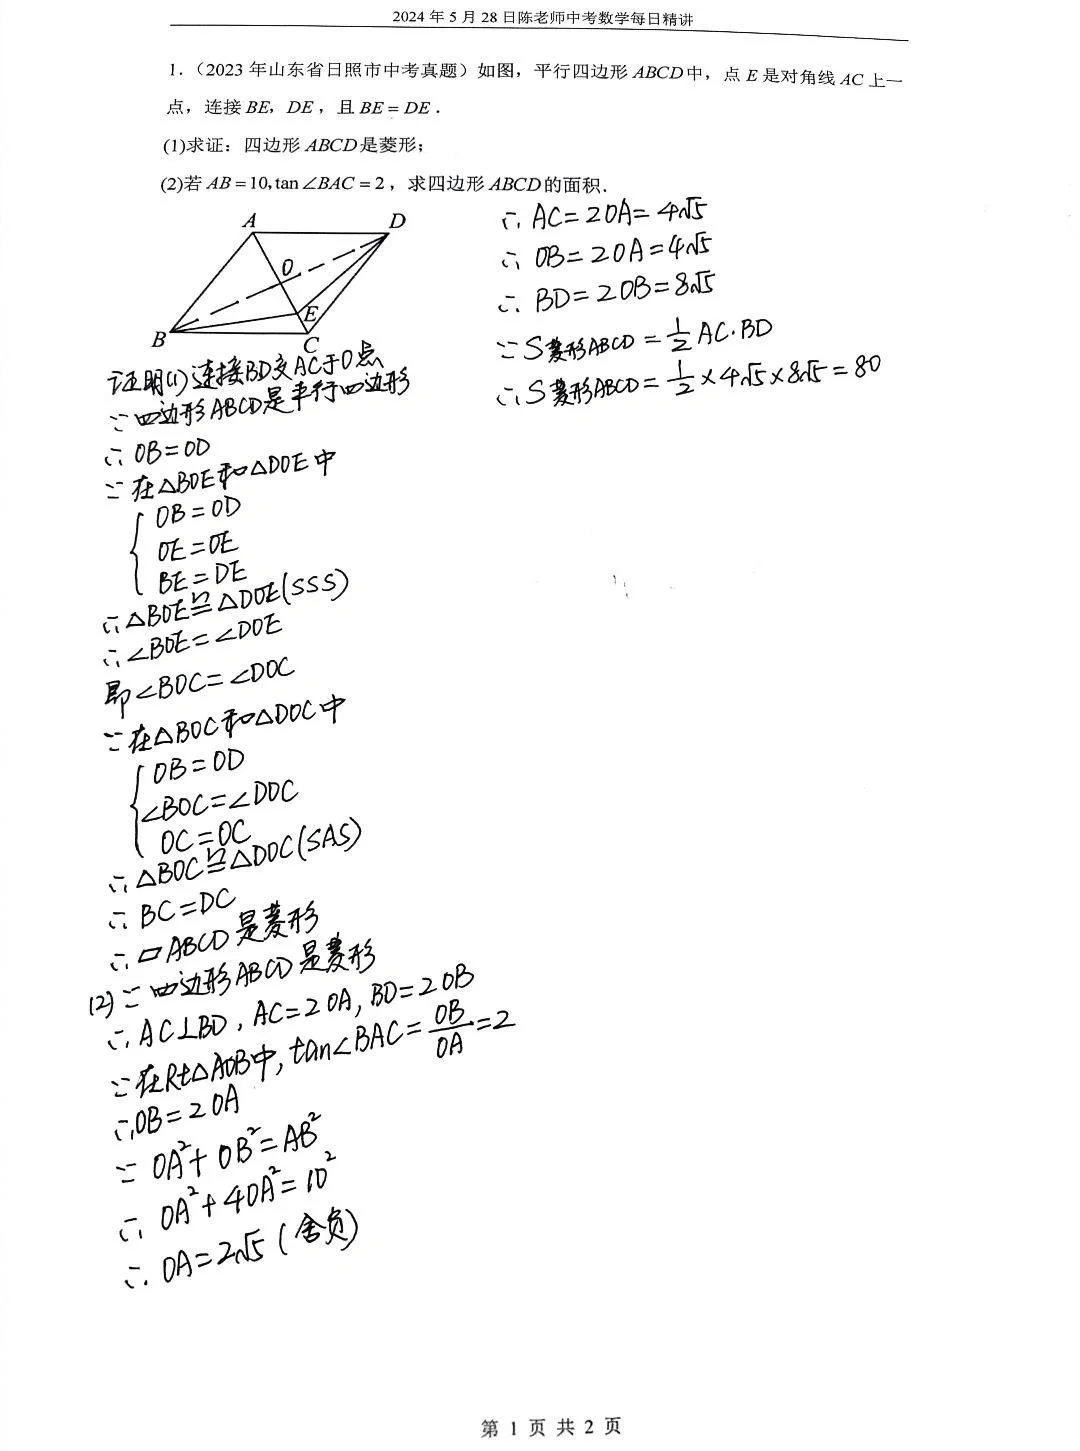 2024 年 5 月 28 日陈老师中考数学每日精讲
1.（2023 年山东省日照市中考真题）如图，平行四边形 ABCD 中，点 E 是对角线 AC 上一
点，连接 BE，DE，且 BE = DE．
(1)求证：四边形 ABCD 是菱形；
(2)若 AB = 10, tan∠BAC = 2，求四边形 ABCD 的面积．
A
D
O
E
B
C
证明(1)连接BD交AC于O点
∵四边形ABCD是平行四边形
∴OB=OD
∵在△BOE和△DOE中
OB=OD
OE=OE
BE=DE
∴△BOE≌△DOE(SSS)
∴∠BOE=∠DOE
即∠BOC=∠DOC
∵在△BOC和△DOC中
OB=OD
∠BOC=∠DOC
OC=OC
∴△BOC≌△DOC(SAS)
∴BC=DC
∴▱ABCD是菱形
(2)∵四边形ABCD是菱形
∴AC⊥BD，AC=2OA，BD=2OB
∵在Rt△AOB中，tan∠BAC=OB/OA=2
∴OB=2OA
∵OA²+OB²=AB²
∴OA²+4OA²=10²
∴OA=2√5（舍负）
∴AC=2OA=4√5
∴OB=2OA=4√5
∴BD=2OB=8√5
∵S菱形ABCD=1/2AC·BD
∴S菱形ABCD=1/2×4√5×8√5=80
第 1 页 共 2 页